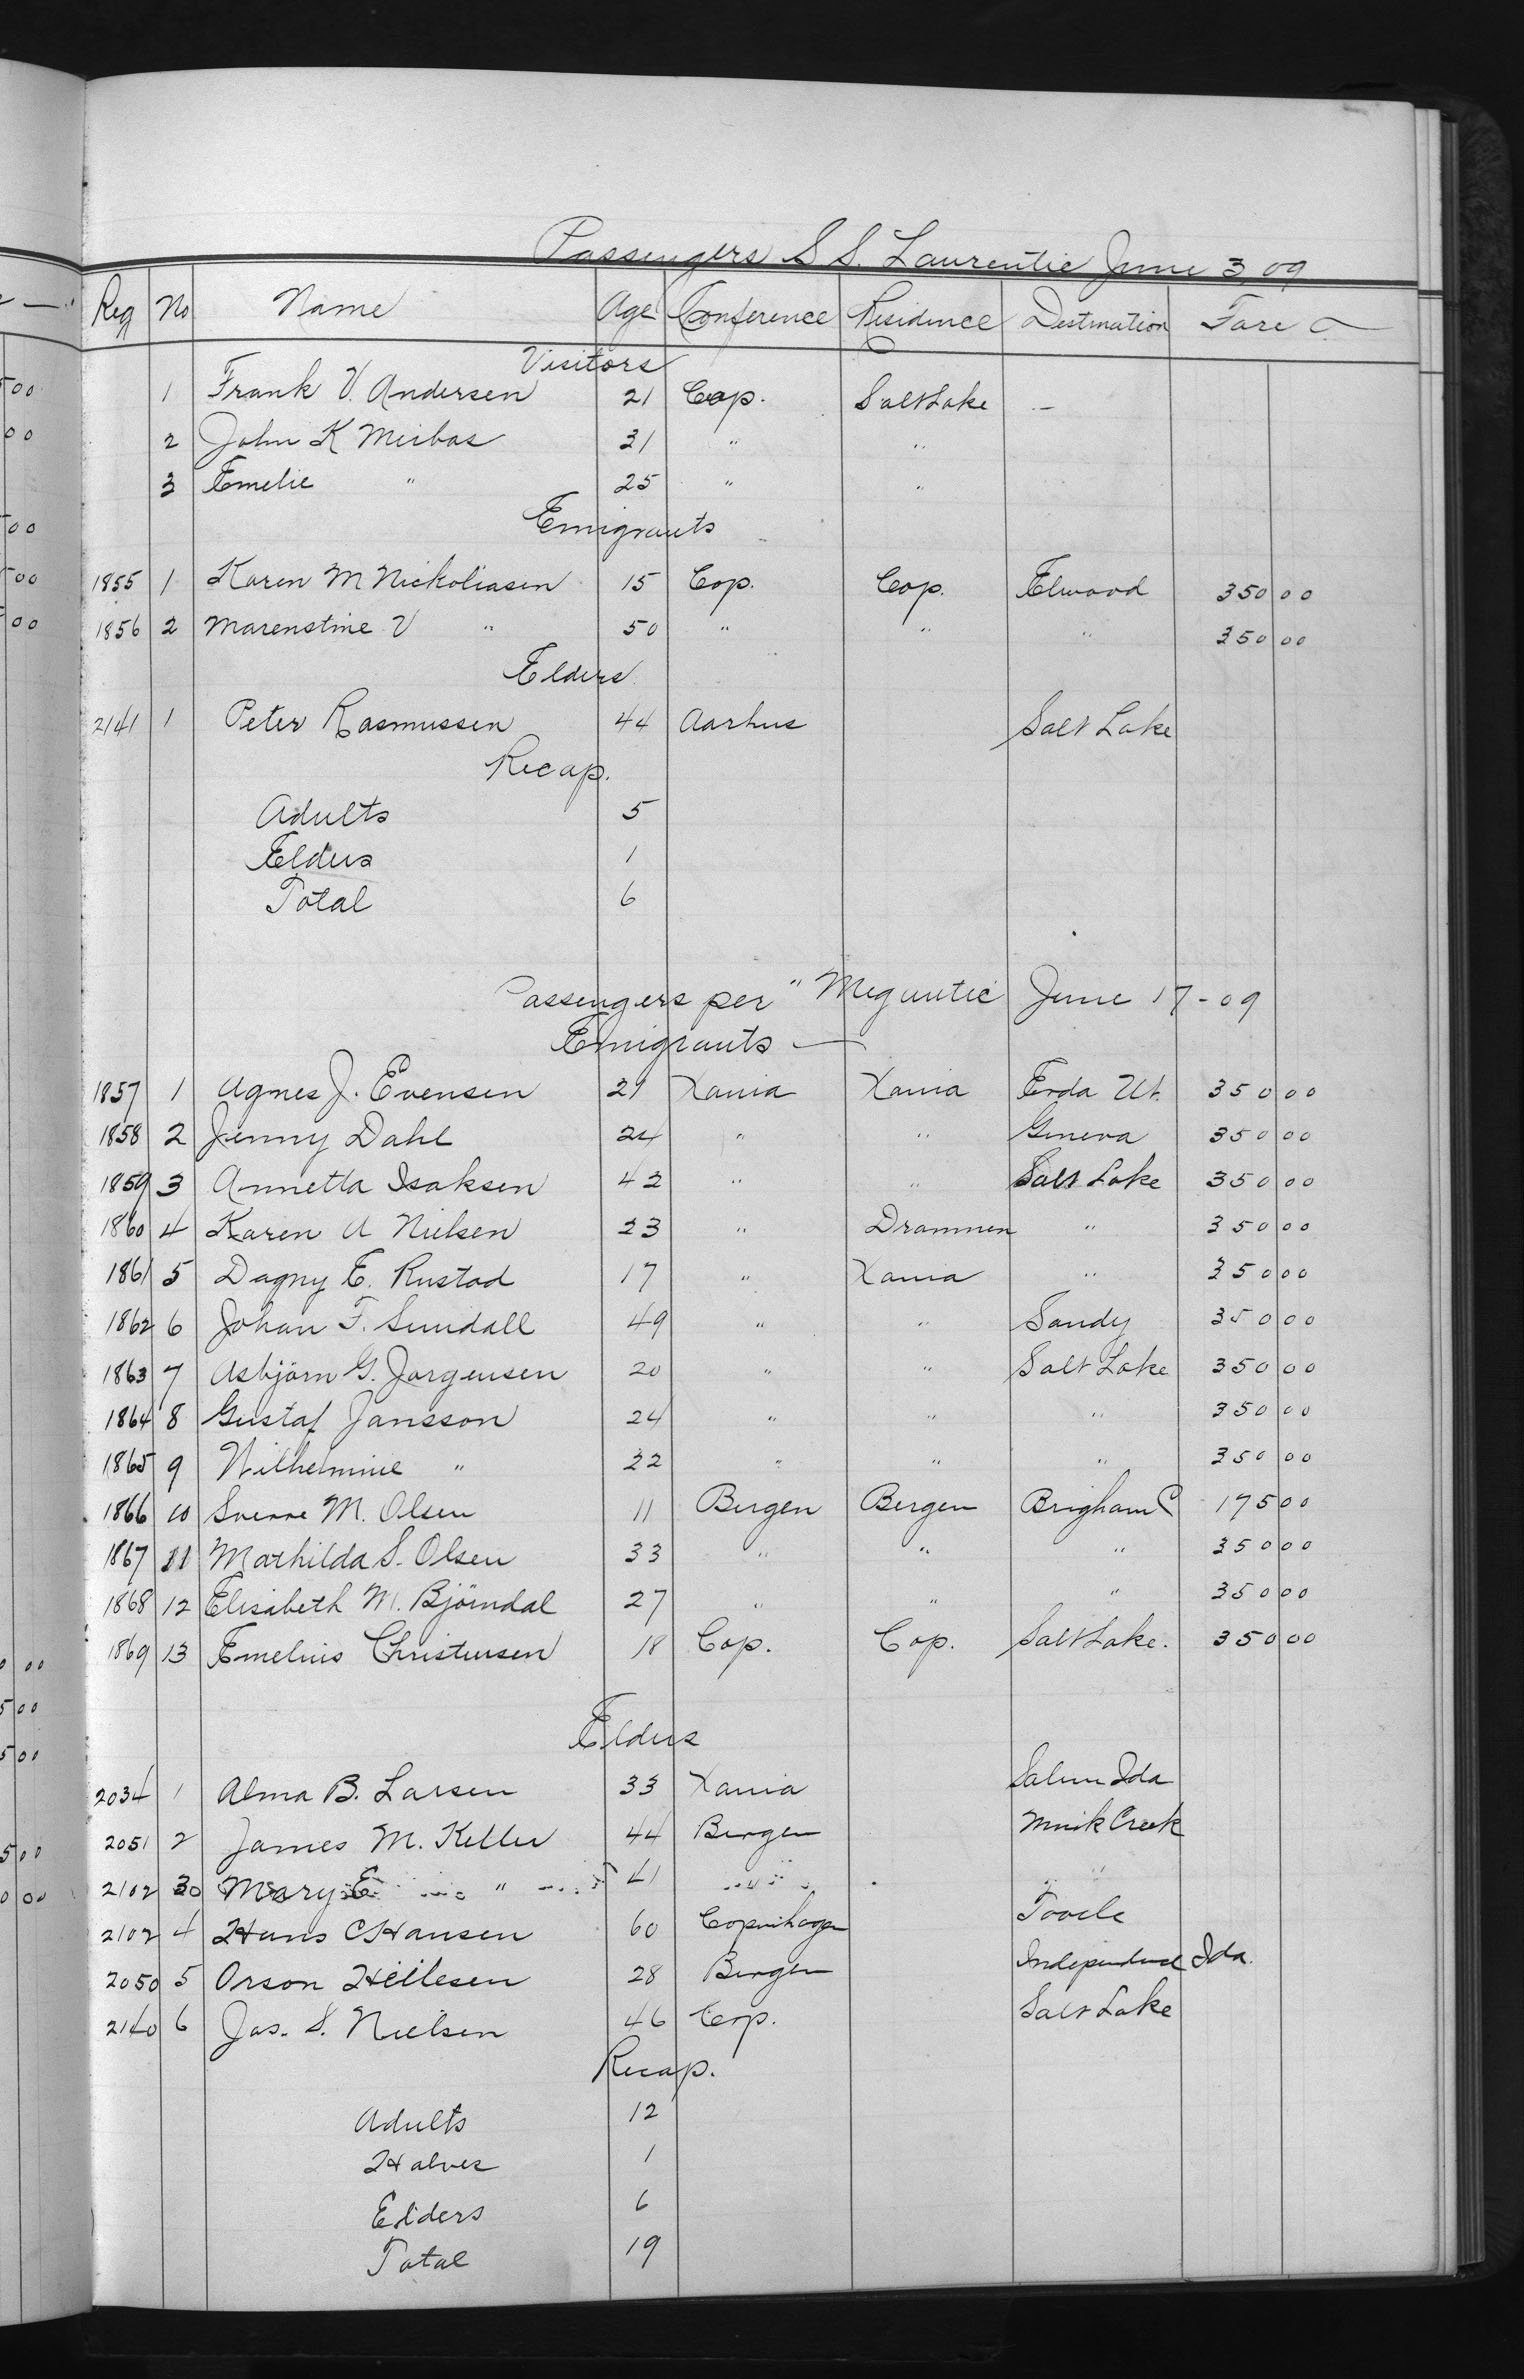 Passengers S S. Laurentic June 3, 09
Reg No Name Age Conference Residence Destination Fare
Visitors
1 Frank V. Andersen 21 Cop. Salt Lake —
2 John K Meibos 31 " "
3 Emelie " 25 " "
Emigrants
1855 1 Karen M Nickoliasen 15 Cop. Cop. Elwood 350 00
1856 2 Marenstine V " 50 " " " 350 00
Elders
2141 1 Peter Rasmussen 44 Aarhus Salt Lake
Recap.
Adults 5
Elders 1
Total 6
Passengers per "Megantic June 17 - 09
Emigrants —
1857 1 Agnes J. Evensen 21 Xania Xania Erda Ut. 350 00
1858 2 Jenny Dahl 24 " " Geneva 350 00
1859 3 Annetta Isaksen 42 " " Salt Lake 350 00
1860 4 Karen A Nielsen 23 " Drammen " 350 00
1861 5 Dagny E. Rustad 17 " Xania " 350 00
1862 6 Johan F. Sundall 49 " " Sandy 350 00
1863 7 Asbjörn G. Jorgensen 20 " " Salt Lake 350 00
1864 8 Gustaf Jansson 24 " " " 350 00
1865 9 Wilhelmine " 22 " " " 350 00
1866 10 Sverre M. Olsen 11 Bergen Bergen Brigham C 175 00
1867 11 Mathilda S. Olsen 33 " " " 350 00
1868 12 Elisabeth M. Björndal 27 " " " 350 00
1869 13 Emelius Christensen 18 Cop. Cop. Salt Lake. 350 00
Elders
2034 1 Alma B. Larsen 33 Xania Salem Ida
2051 2 James M. Keller 44 Bergen Mink Creek
2102 3 Mary E " 41 " "
2102 4 Hans C Hansen 60 Copenhagen Tooele
2050 5 Orson Hellesen 28 Bergen Independence Ida.
2140 6 Jas. S. Nielsen 46 Cop. Salt Lake
Recap.
Adults 12
Halves 1
Elders 6
Total 19